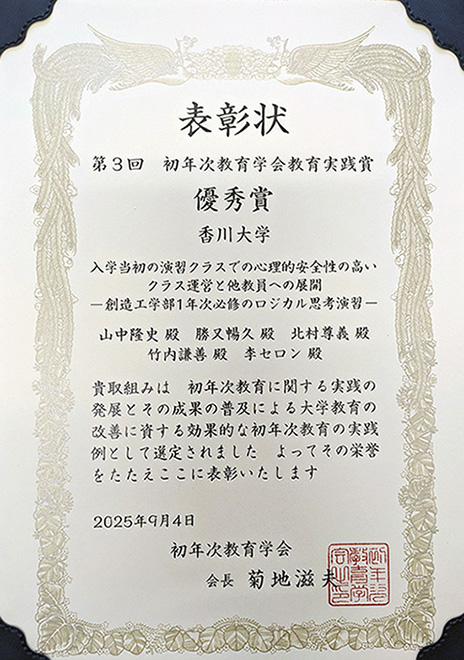 表彰状
第3回　初年次教育学会教育実践賞
優秀賞
香川大学
入学当初の演習クラスでの心理的安全性の高い
クラス運営と他教員への展開
―創造工学部1年次必修のロジカル思考演習―
山中隆史 殿　勝又暢久 殿　北村尊義 殿
竹内謙善 殿　李セロン 殿
貴取組みは　初年次教育に関する実践の
発展とその成果の普及による大学教育の
改善に資する効果的な初年次教育の実践
例として選定されました　よってその栄誉
をたたえここに表彰いたします
2025年9月4日
初年次教育学会
会長　菊地滋夫